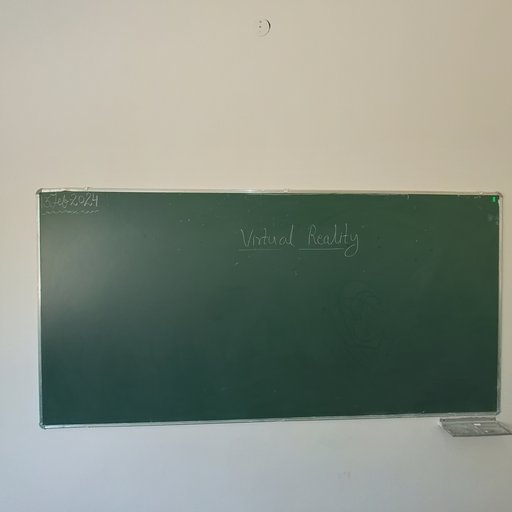 5 Feb 2024
Virtual Reality